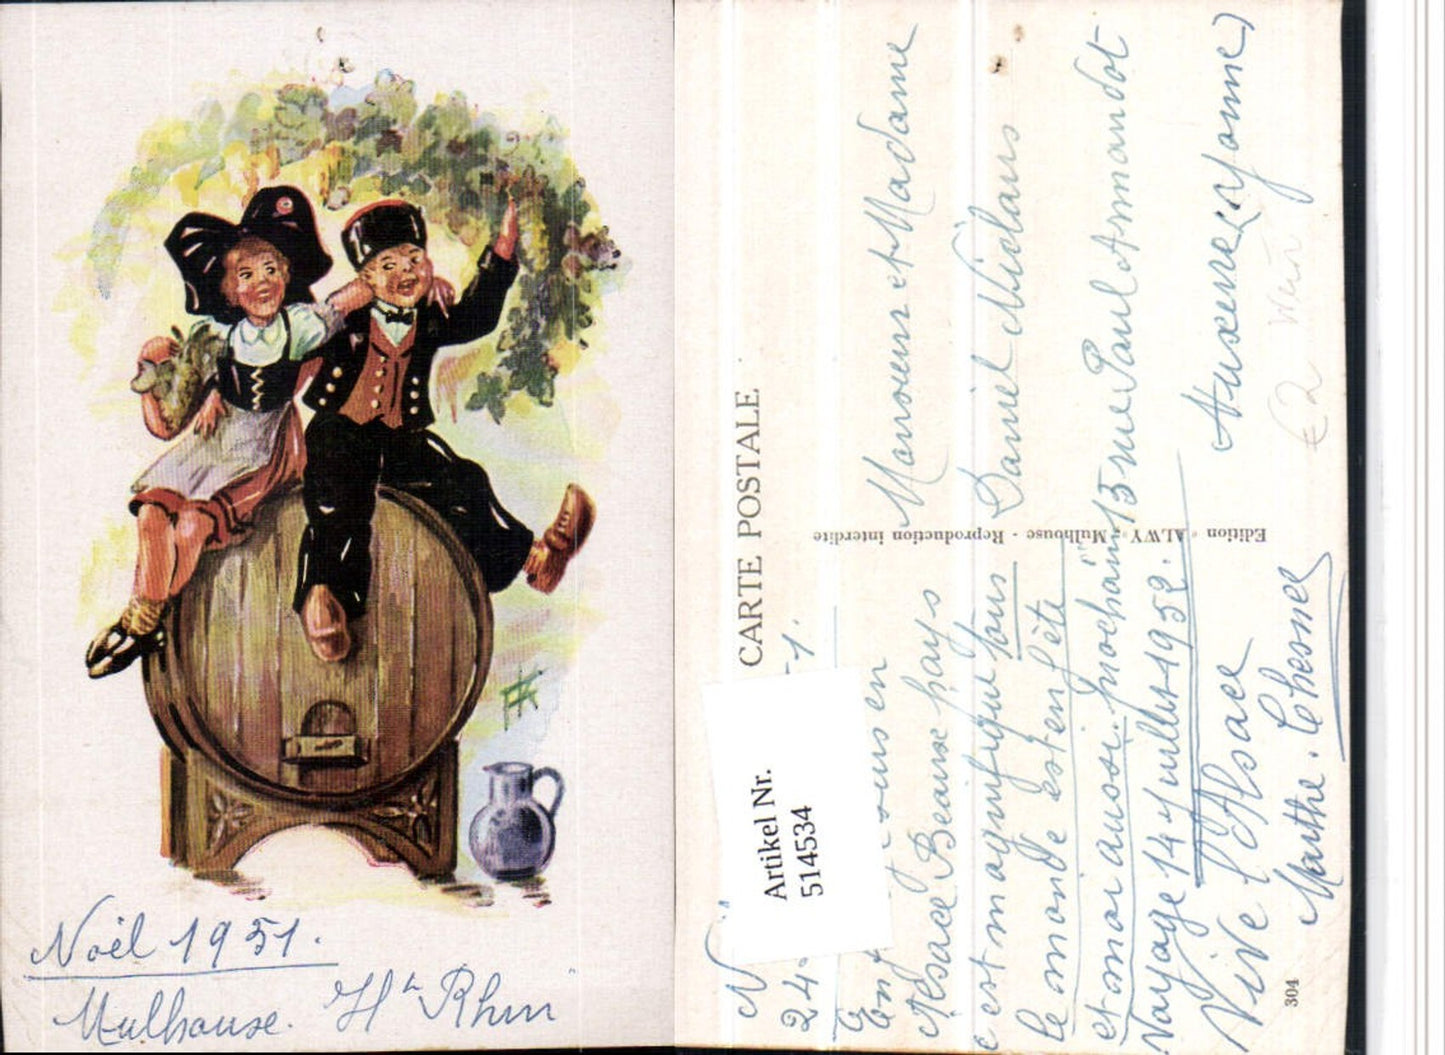 Noël 1951.
Mulhouse. Ht Rhin
CARTE POSTALE
Artikel Nr.
514534
24
en
Alsace Beaux pays
c'est magnifique tous
le monde est en fête
et moi aussi. prochain
Voyage 14 juillet 1952.
Vive l'Alsace
Marthe. Chesnel
304
Edition "ALWY" Mulhouse - Reproduction interdite
Monsieur et Madame
Daniel
13 rue Paul Armandot
Auxerre (Yonne)
Wein
€2